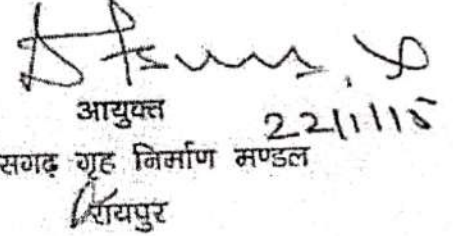 आयुक्त
22/1/15
सगढ़ गृह निर्माण मण्डल
रायपुर